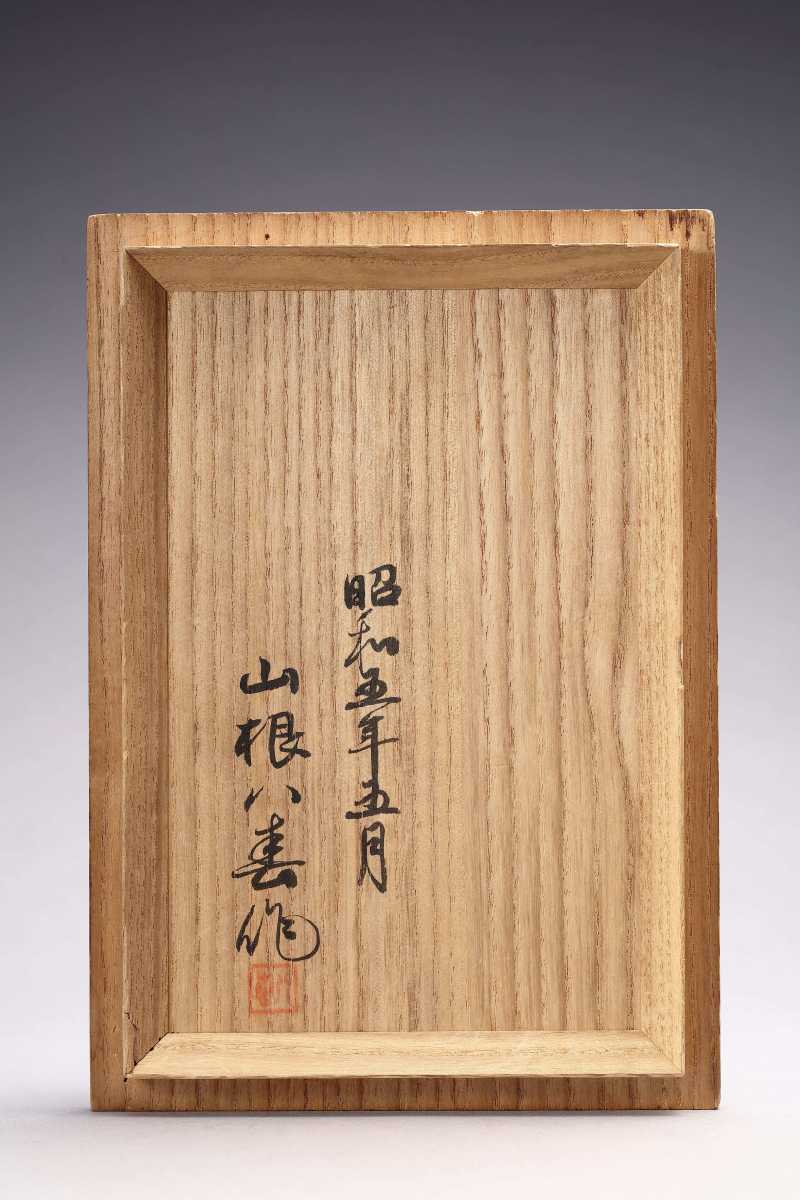 昭和五年五月
山根八春作